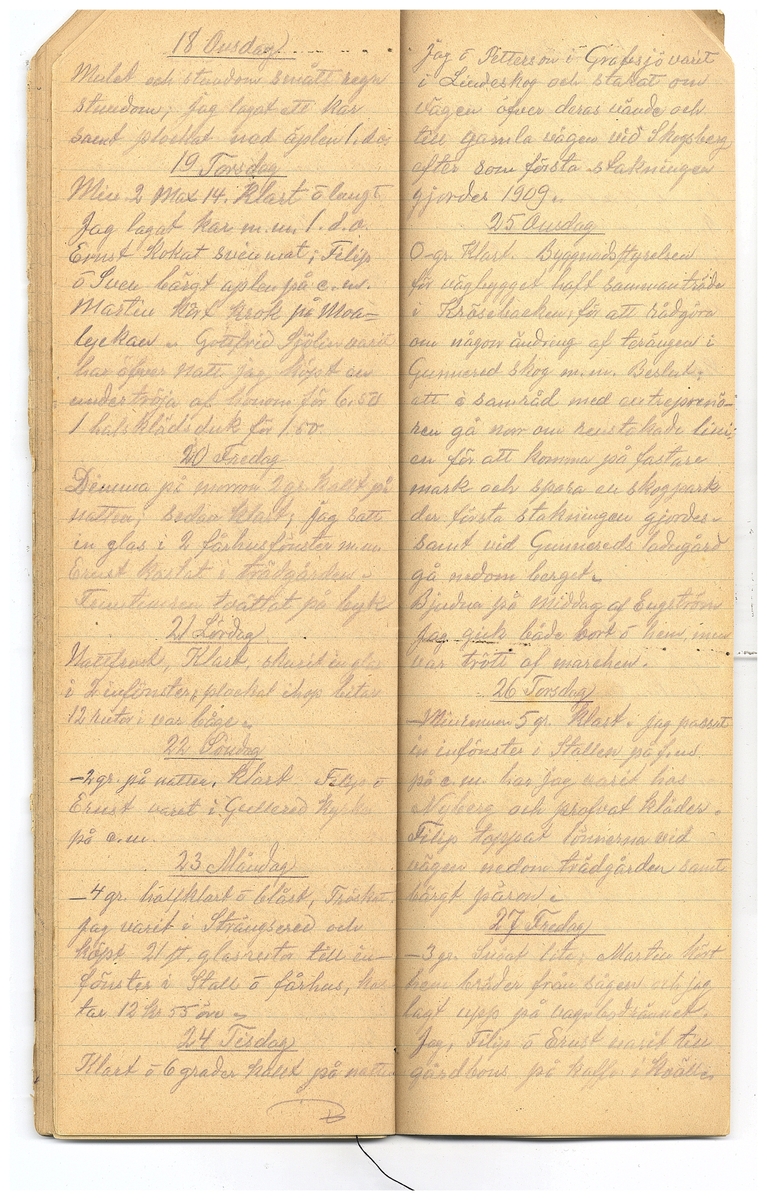 18 Onsdag
Mulet och stundom smått regn
stundom; jag lagat ett kar
samt plockat ned äplen 1. dus
19 Torsdag
Min 2 Max 14. Klart ö lungt
Jag lagat kar m.m. 1. d. o.
Ernst kokat svinmat; Filip
ö Sven bärgt aplen på e.m.
Martin kört krok på Moa-
lyckan. Gottfrid Hjölin varit
här öfver natt. jag köpt en
undertröja af honom för 6.50
1 halsklädsduk för 1.50
20 Fredag
Dimma på morron 2 gr. kallt på
natten; sedan klart; jag satt
in glas i 2 fårhusfönster m.m
Ernst kastat i trädgården.
Fruntimren tvättat på byk
21 Lördag
Nattfrost, Klart, skurit in glas
i 2 infönster, plockat ihop bitar
12 rutor i var båge.
22 Söndag
-2 gr. på natten, klart Filip ö
Ernst varit i Gullered kyrka
på e.m.
23 Måndag
-4 gr. halfklart ö blåst, Tröskat
jag varit i Strängsered och
köpt 21 st. glasrutor till in-
fönster i Stall ö fårhus, kos
tar 12 kr 55 öre
24 Tisdag
Klart ö 6 grader kallt på natten
Jag ö Petterson i Grafsjö varit
i Lindeskog och stakat om
vägen öfver deras vände och
till gamla vägen vid Skogsberg
efter som första stakningen
gjordes 1909.
25 Onsdag
0-gr. Klart. Byggnadsstyrelsen
för vägbygget haft sammanträde
i Kråsebacken, för att rådgöra
om någon ändring af terängen i
Gunnered skog m.m. Beslut;
att i samråd med entreprenö-
ren gå norr om renstakade lini
en för att komma på fastare
mark och spara en skogpark
der första stakningen gjordes.
samt vid Gunnereds ladugård
gå nedom berget.
Bjudna på middag af Engström
Jag gick både bort ö hem, men
var trött af marschen.
26 Torsdag
-Minimum 5 gr. klart. jag passat
in infönster i Stallen på f.m.
på e.m. har jag varit hos
Nyberg och profvat kläder.
Filip toppat lönnerna vid
vägen nedom trädgården samt
bärgt päron.
27 Fredag
-3 gr. Snöat lite; Martin kört
hem bräder från sågen och jag
lagt upp på vagnbodrännet.
Jag, Filip ö Ernst varit till
gårdbons på kalfsx i kväll